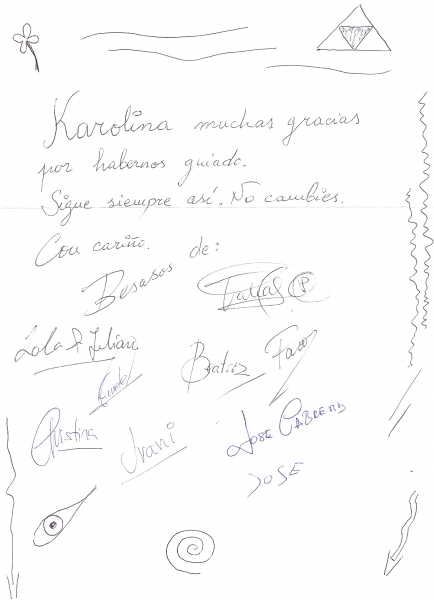 Karolina muchas gracias
por habernos guiado.
Sigue siempre así. No cambies.
Con cariño. de:
Besasos
Lola & Julian
Beatriz
Cristina
Irani
JOSE CABRERA
JOSE